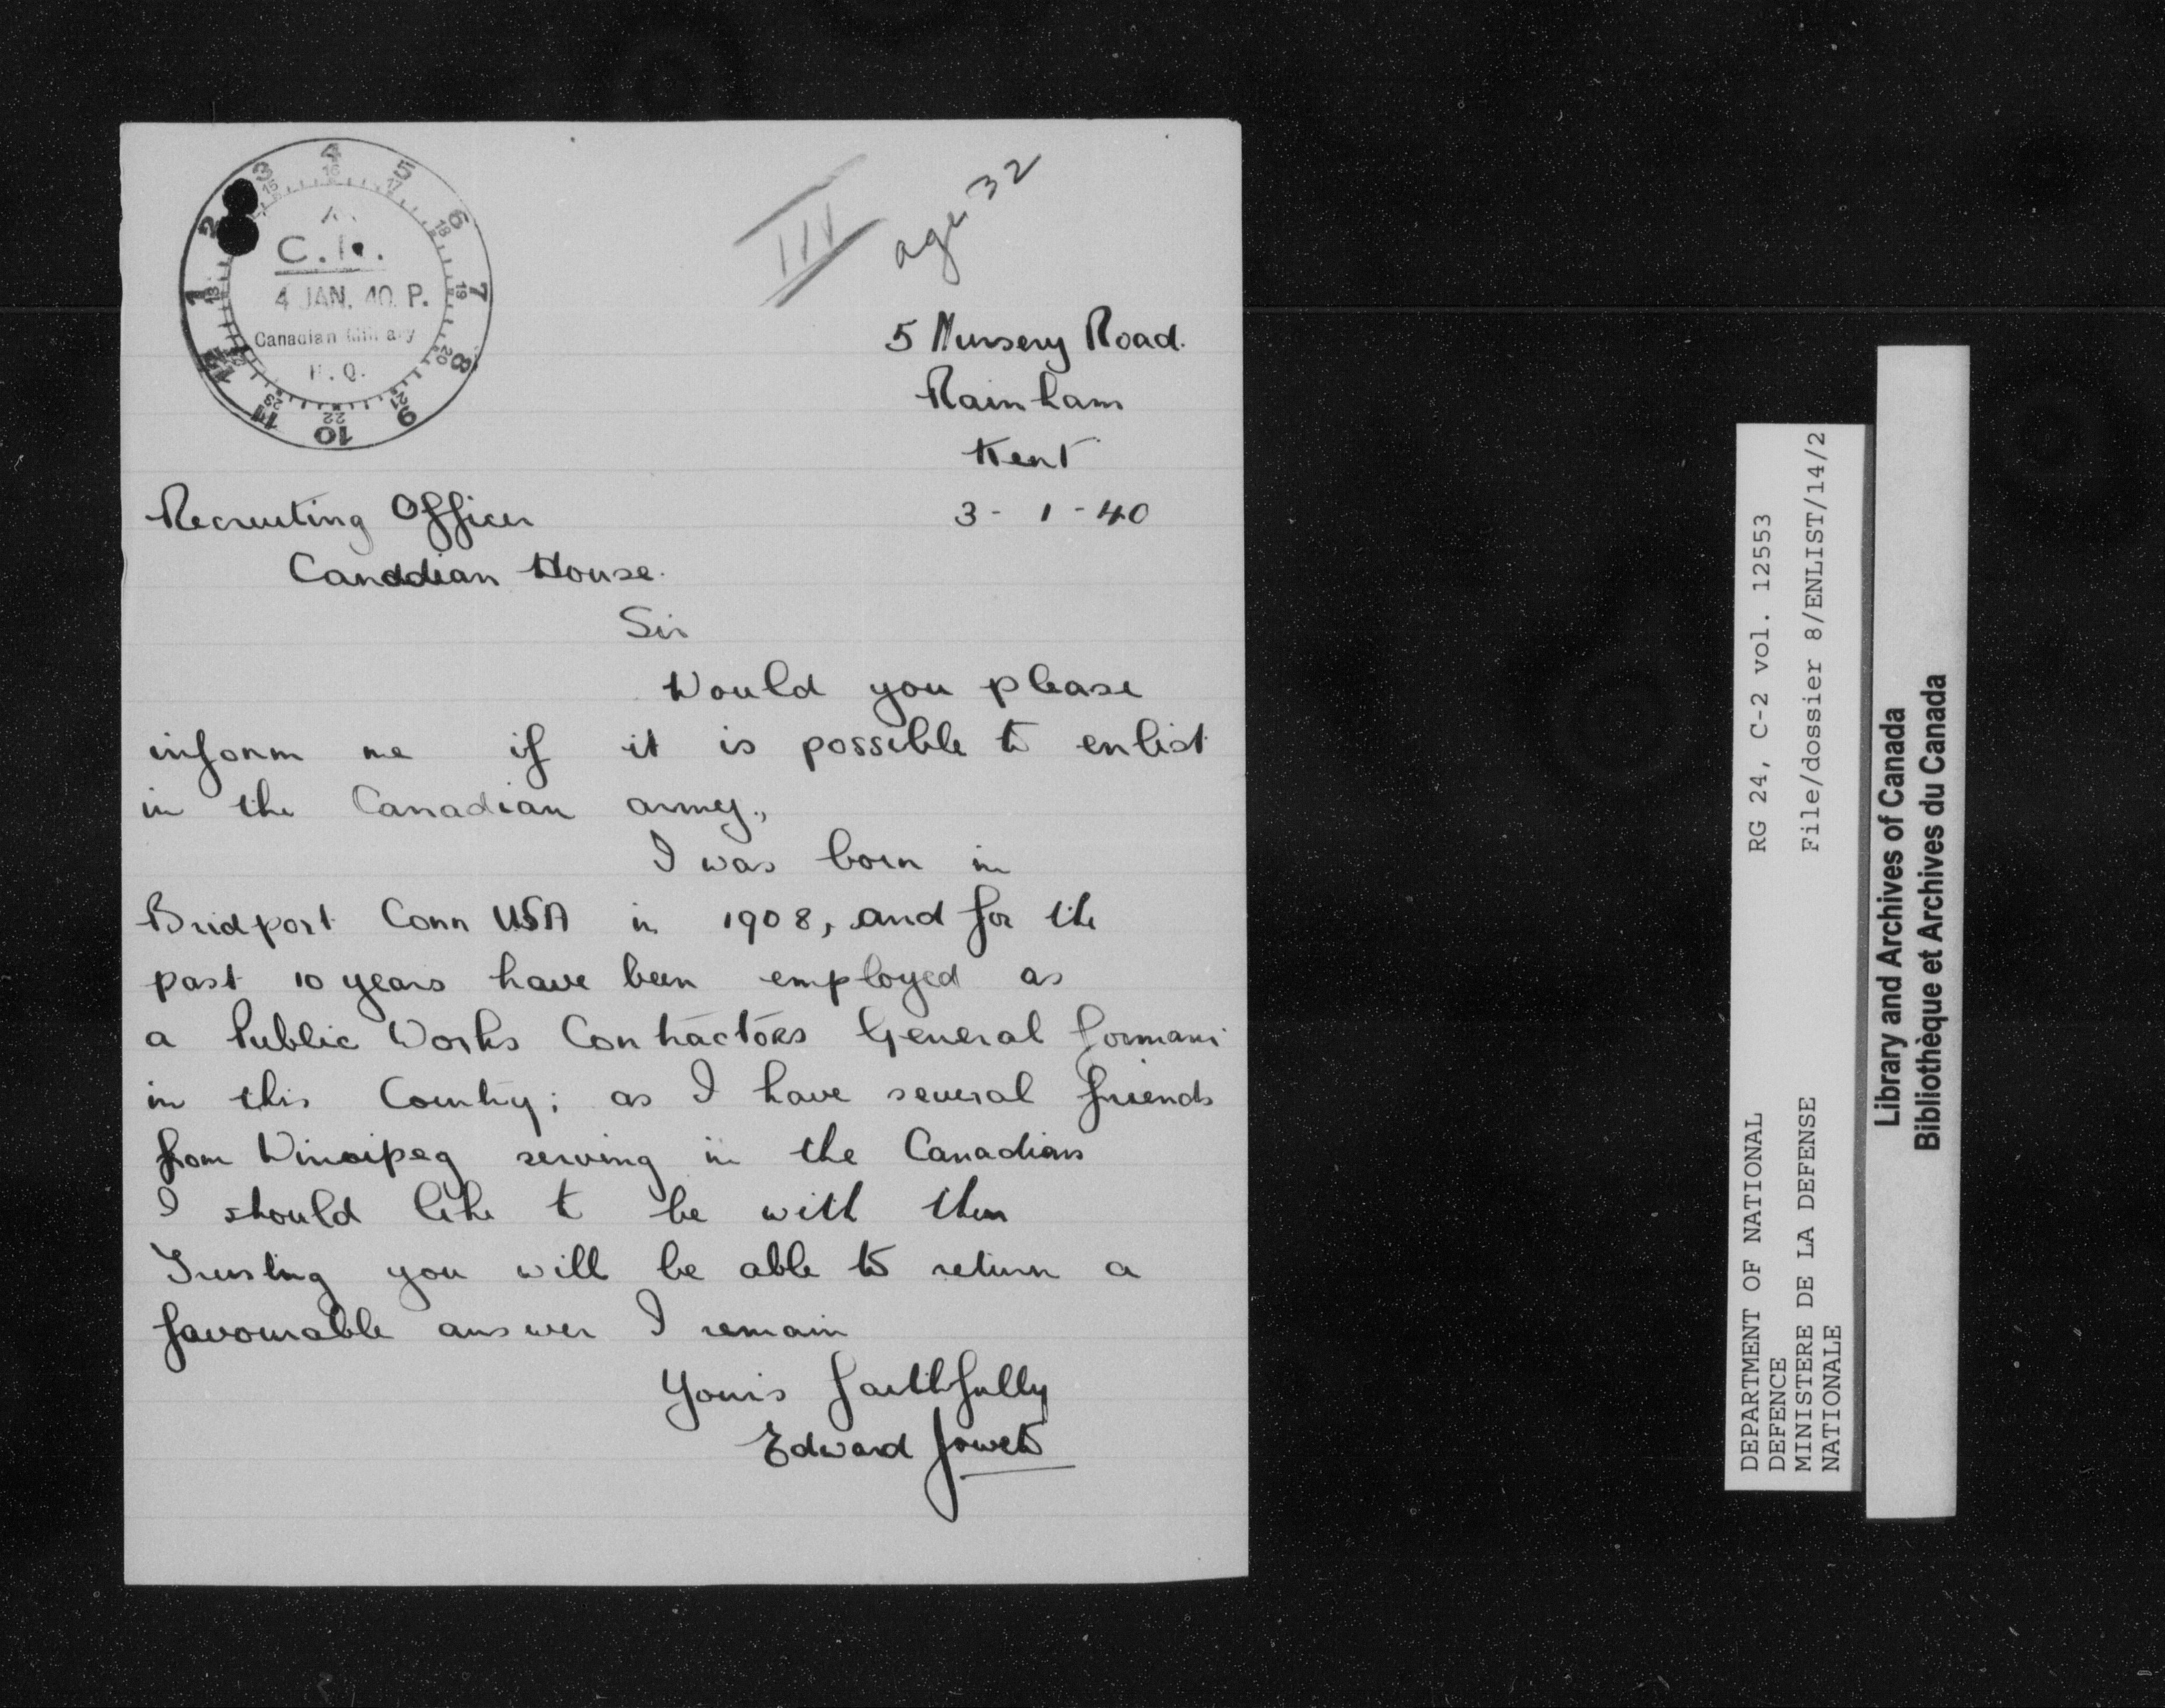 C.R.
4 JAN. 40. P.
Canadian Military
H.Q.
III
age 32
5 Nursery Road.
Rainham
Kent
3 - 1 - 40
Recruiting Officer
Canadian House.
Sir
Would you please
inform me if it is possible to enlist
in the Canadian army.,
I was born in
Bridport Conn USA in 1908, and for the
past 10 years have been employed as
a Public Works Contractors General
in this Country; as I have several friends
from Winnipeg serving in the Canadians
I should like to be with them
Trusting you will be able to return a
favourable answer I remain
Yours faithfully
Edward
RG 24, C-2 vol. 12553
File/dossier 8/ENLIST/14/2
DEPARTMENT OF NATIONAL
DEFENCE
MINISTERE DE LA DEFENSE
NATIONALE
Library and Archives of Canada
Bibliothèque et Archives du Canada